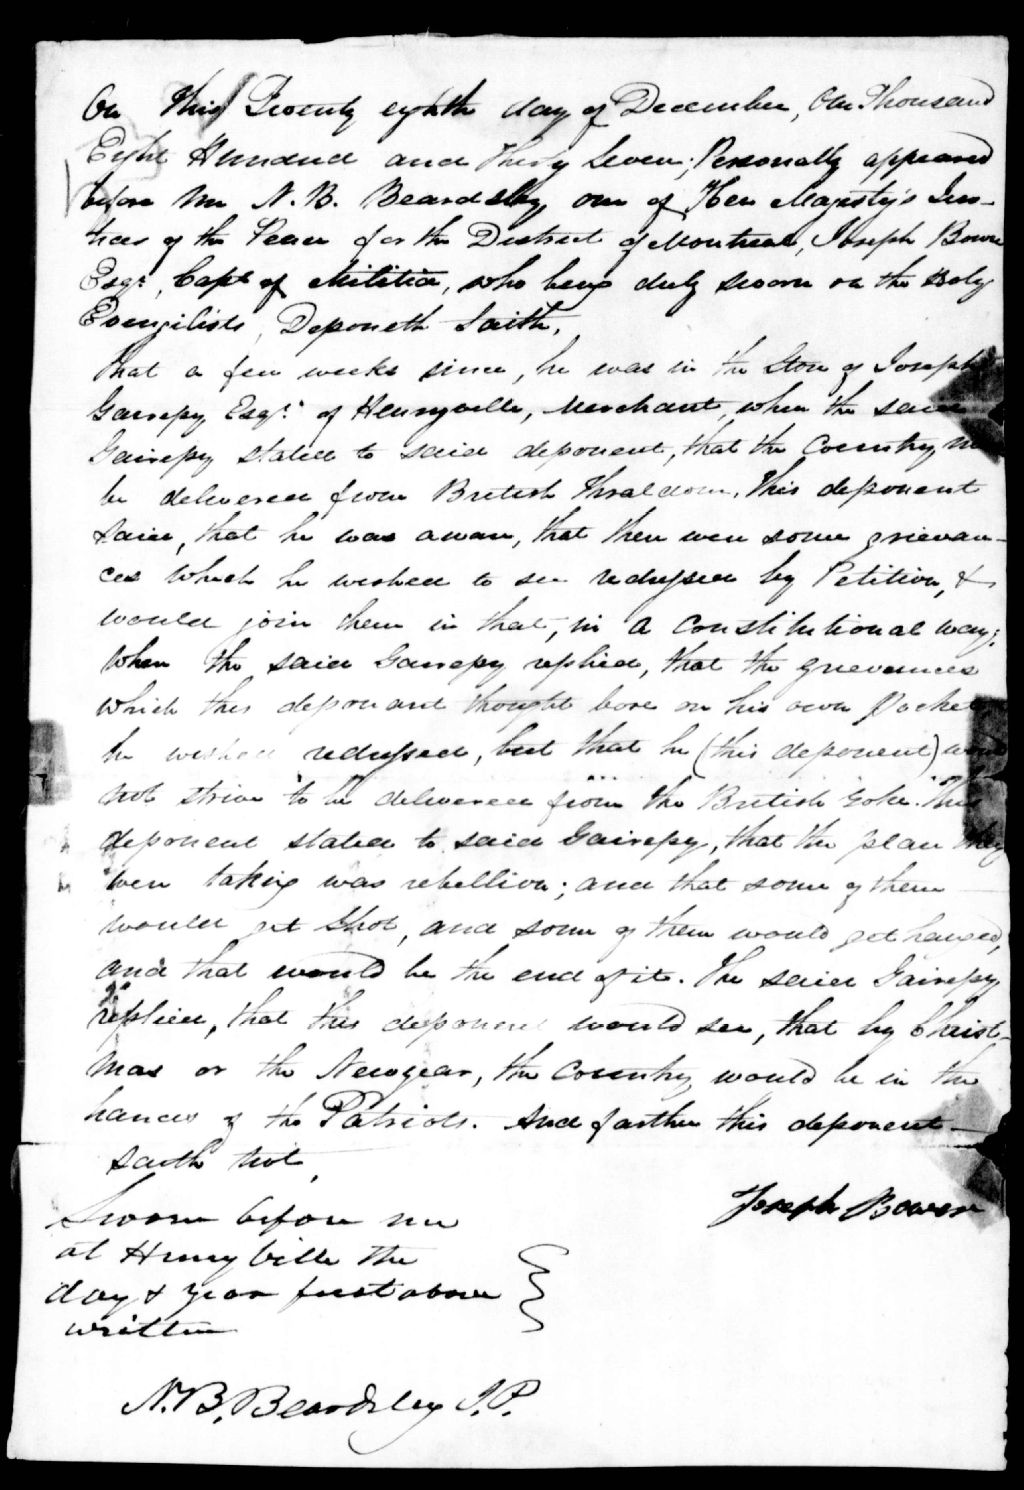 On this Twenty eighth day of December, One Thousand
Eight Hundred and Thirty Seven; Personally appeared
before me N. B. Beardsley one of Her Majesty's Jus-
tices of the Peace for the District of Montreal, Joseph Bowen
Esqr. Capt of Militia, who being duly sworn on the Holy
Evangilists, Deponeth Saith,
That a few weeks since, he was in the Store of Joseph
Gairepy Esqr. of Henryville, Merchant, when the said
Gairepy stated to said deponent, that the Country
be delivered from British thraldom. This deponent
said, that he was aware, that there were some grievan-
ces which he wished to see redressed by Petition, &
would join them in that, in a Constitutional way;
When the said Gairepy replied, that the grievances
which this deponant thought bore on his own Pocket
he wished redressed, but that he (this deponent) would
not strive to be delivered from the British Yoke. This
deponent stated to said Gairepy, that the plan they
were taking was rebellion; and that some of them
would get shot, and some of them would get hanged,
and that would be the end of it. The said Gairepy
replied, that this deponent would see, that by Christ-
mas or the Newyear, the Country would be in the
hands of the Patriots. And farther this deponent
saith not,
Joseph Bowen
Sworn before me
at Henryville the
day & year first above
written
N. B. Beardsley J.P.